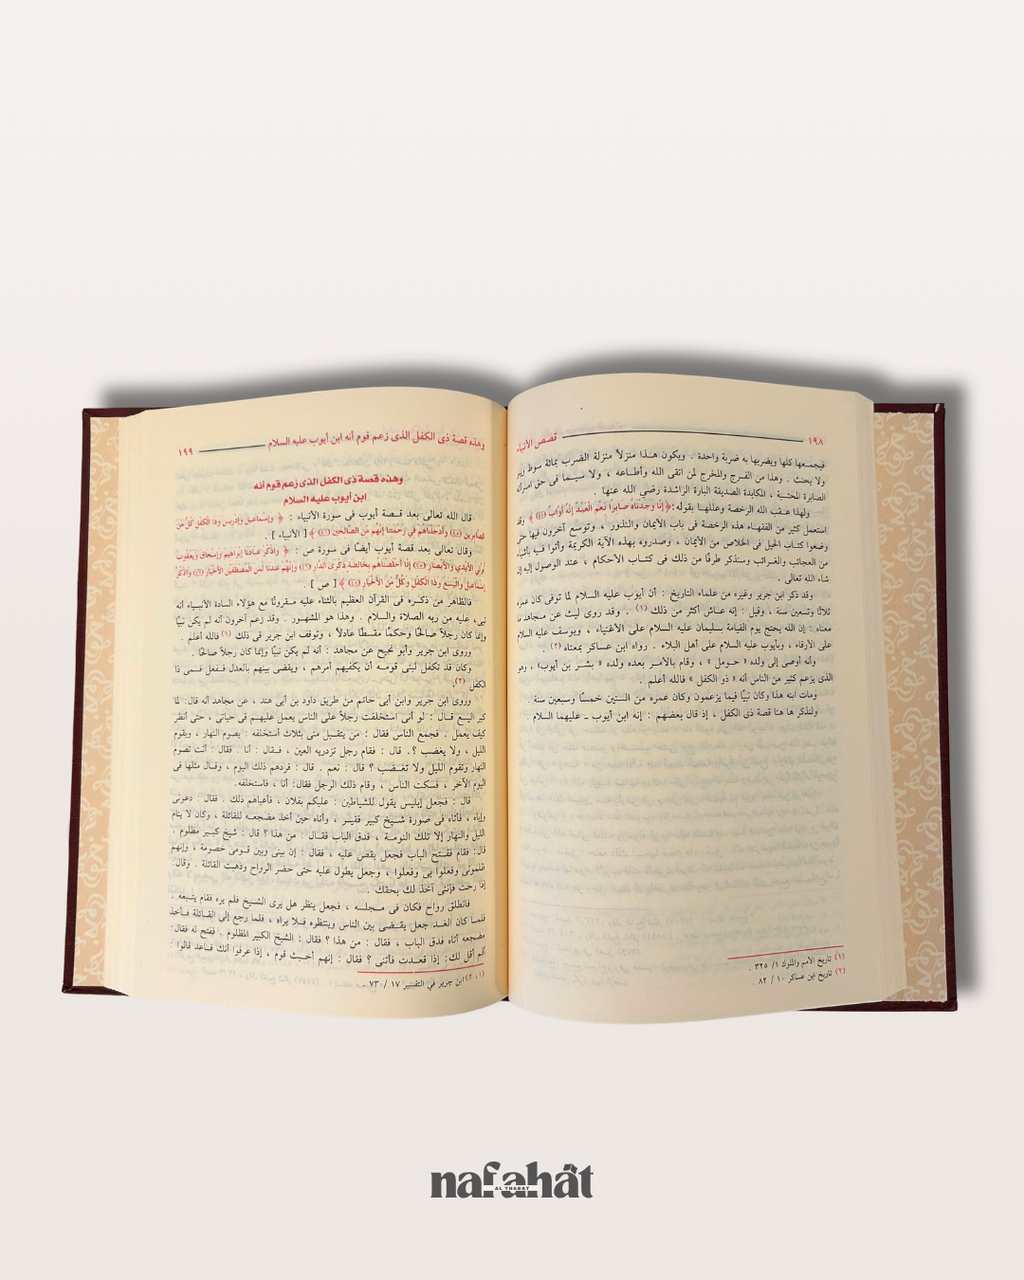 ١٩٨ قصص الأنبياء
فيجمعها كلها ويضربها به ضربة واحدة . ويكون هذا منزلاً منزلة الضرب بمائة سوط ويبر
ولا يحنث . وهذا من الفرج والمخرج لمن اتقى الله وأطاعه ، ولا سيما فى حق امرأته
الصابرة المحتسبة ، المكابدة الصديقة البارة الراشدة رضى الله عنها .
ولهذا عقب الله الرخصة وعللها بقوله : ﴿ إِنَّا وَجَدْنَاهُ صَابِرًا نِّعْمَ الْعَبْدُ إِنَّهُ أَوَّابٌ (٤٤) ﴾ وقد
استعمل كثير من الفقهاء هذه الرخصة فى باب الأيمان والنذور ، وتوسع آخرون فيها حتى
وضعوا كتاب الحيل فى الخلاص من الأيمان ، وصدروه بهذه الآية الكريمة وأتوا فيه بأشياء
من العجائب والغرائب وسنذكر طرفًا من ذلك فى كتاب الأحكام ، عند الوصول إليه إن
شاء الله تعالى .
وقد ذكر ابن جرير وغيره من علماء التاريخ : أن أيوب عليه السلام لما توفى كان عمره
ثلاثًا وتسعين سنة ، وقيل : إنه عاش أكثر من ذلك (١) . وقد روى ليث عن مجاهد ما
معناه : إن الله يحتج يوم القيامة بسليمان عليه السلام على الأغنياء ، وبيوسف عليه السلام
على الأرقاء ، وبأيوب عليه السلام على أهل البلاء . رواه ابن عساكر بمعناه (٢) .
وأنه أوصى إلى ولده « حومل » ، وقام بالأمر بعده ولده « بشر بن أيوب» ، وهو
الذى يزعم كثير من الناس أنه « ذو الكفل » فالله أعلم .
ومات ابنه هذا وكان نبيًا فيما يزعمون وكان عمره من السنين خمسًا وسبعين سنة .
ولنذكر ها هنا قصة ذى الكفل ، إذ قال بعضهم : إنه ابن أيوب ـ عليهما السلام .
(١) تاريخ الأمم والملوك ١/ ٣٢٥ .
(٢) تاريخ ابن عساكر ١٠ / ٨٢ .
وهذه قصة ذى الكفل الذى زعم قوم أنه ابن أيوب عليه السلام ١٩٩
وهذه قصة ذى الكفل الذى زعم قوم أنه
ابن أيوب عليه السلام
قال الله تعالى بعد قصة أيوب فى سورة الأنبياء : ﴿ وَإِسْمَاعِيلَ وَإِدْرِيسَ وَذَا الْكِفْلِ كُلٌّ مِّنَ
الصَّابِرِينَ (٨٥) وَأَدْخَلْنَاهُمْ فِي رَحْمَتِنَا إِنَّهُم مِّنَ الصَّالِحِينَ (٨٦) ﴾ [ الأنبياء ] .
وقال تعالى بعد قصة أيوب أيضًا فى سورة ص : ﴿ وَاذْكُرْ عِبَادَنَا إِبْرَاهِيمَ وَإِسْحَاقَ وَيَعْقُوبَ
أُولِي الأَيْدِي وَالأَبْصَارِ (٤٥) إِنَّا أَخْلَصْنَاهُم بِخَالِصَةٍ ذِكْرَى الدَّارِ (٤٦) وَإِنَّهُمْ عِندَنَا لَمِنَ الْمُصْطَفَيْنَ الأَخْيَارِ (٤٧) وَاذْكُرْ
إِسْمَاعِيلَ وَالْيَسَعَ وَذَا الْكِفْلِ وَكُلٌّ مِّنَ الأَخْيَارِ (٤٨) ﴾ [ ص ] .
فالظاهر من ذكره فى القرآن العظيم بالثناء عليه مقرونًا مع هؤلاء السادة الأنبياء أنه
نبى، عليه من ربه الصلاة والسلام . وهذا هو المشهور . وقد زعم آخرون أنه لم يكن نبيًا
وإنما كان رجلاً صالحًا وحكمًا مقسطًا عادلاً ، وتوقف ابن جرير فى ذلك (١) فالله أعلم .
وروى ابن جرير وأبو نجيح عن مجاهد : أنه لم يكن نبيًا وإنما كان رجلاً صالحًا .
وكان قد تكفل لبنى قومه أن يكفيهم أمرهم ، ويقضى بينهم بالعدل ففعل فسمى ذا
الكفل (٢).
وروى ابن جرير وابن أبى حاتم من طريق داود بن أبى هند ، عن مجاهد أنه قال: لما
كبر اليسع قال : لو أنى استخلفت رجلاً على الناس يعمل عليهم فى حياتى ، حتى أنظر
كيف يعمل . فجمع الناس فقال : من يتقبل منى بثلاث أستخلفه : يصوم النهار ، ويقوم
الليل ، ولا يغضب ؟ . قال : فقام رجل تزدريه العين ، فقال : أنا . فقال : أنت تصوم
النهار وتقوم الليل ولا تغضب ؟ قال : نعم . قال : فردهم ذلك اليوم ، وقال مثلها فى
اليوم الآخر ، فسكت الناس ، وقام ذلك الرجل فقال: أنا ، فاستخلفه.
قال : فجعل إبليس يقول للشياطين : عليكم بفلان ، فأعياهم ذلك . فقال : دعونى
وإياه ، فأتاه فى صورة شيخ كبير فقير ، وأتاه حين أخذ مضجعه للقائلة ، وكان لا ينام
الليل والنهار إلا تلك النومة ، فدق الباب فقال : من هذا ؟ قال : شيخ كبير مظلوم .
قال: فقام ففتح الباب فجعل يقص عليه ، فقال : إن بينى وبين قومى خصومة ، وإنهم
ظلمونى وفعلوا بى وفعلوا ، وجعل يطول عليه حتى حضر الرواح وذهبت القائلة . وقال:
إذا رحت فإننى آخذ لك بحقك .
فانطلق رواح فكان فى مجلسه ، فجعل ينظر هل يرى الشيخ فلم يره فقام يتبعه .
فلما كان الغد جعل يقضى بين الناس وينتظره فلا يراه ، فلما رجع إلى القائلة فأخذ
مضجعه أتاه فدق الباب ، فقال : من هذا ؟ فقال : الشيخ الكبير المظلوم . ففتح له فقال:
ألم أقل لك: إذا قعدت فأتنى ؟ فقال : إنهم أخبث قوم ، إذا عرفوا أنك قاعد قالوا :
(١ ، ٢) ابن جرير في التفسير ١٧ / ٧٣ .
nafahat
AL THABAT